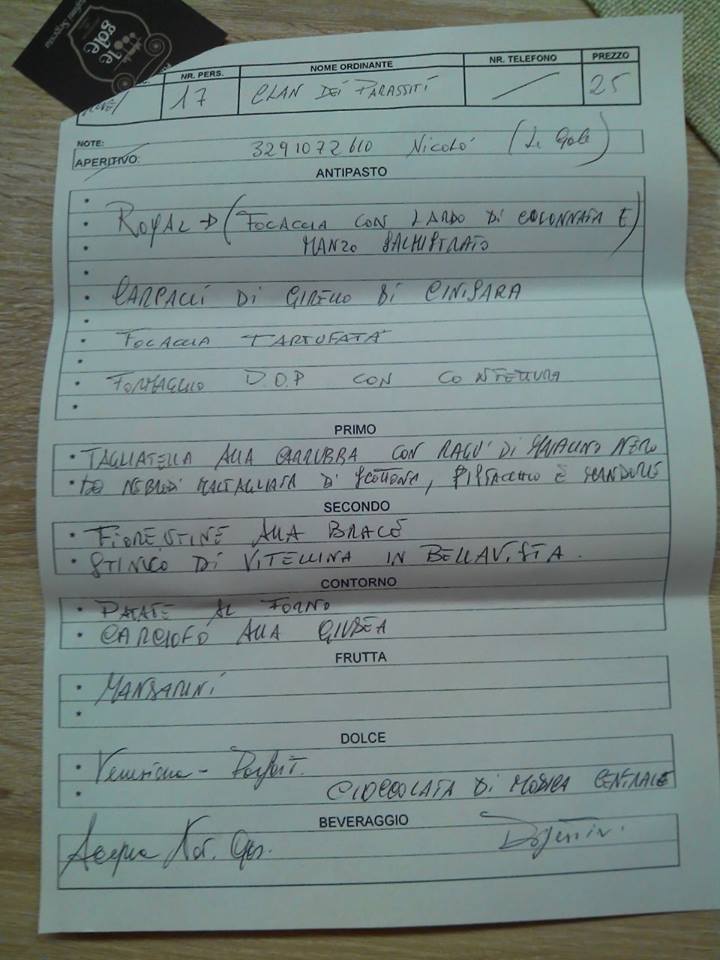 le gole
NR. PERS. NOME ORDINANTE NR. TELEFONO PREZZO
17 CLAN DEI PARASSITI 25
NOTE: 3291072610 NICOLÓ (Le Gole)
APERITIVO:
ANTIPASTO
ROYAL → (FOCACCIA CON LARDO DI COLONNATA E
MANZO SALMISTRATO)
CARPACCI DI GIRELLO DI CINISARA
FOCACCIA TARTUFATA
FORMAGGIO D.O.P CON CONFETTURA
PRIMO
• TAGLIATELLA ALLA CARRUBBA CON RAGU' DI MAIALINO NERO
• DEI NEBRODI MALTAGLIATA DI SCOTTONA, PISTACCHIO E MANDORLE
SECONDO
• FIORENTINE ALLA BRACE
• STINCO DI VITELLINA IN BELLAVISTA.
CONTORNO
• PATATE AL FORNO
• CARCIOFO ALLA GIUDEA
FRUTTA
• MANDARINI
•
DOLCE
•
• CIOCCOLATA DI MODICA CENTRALE
BEVERAGGIO
Acqua Nat. Gas.